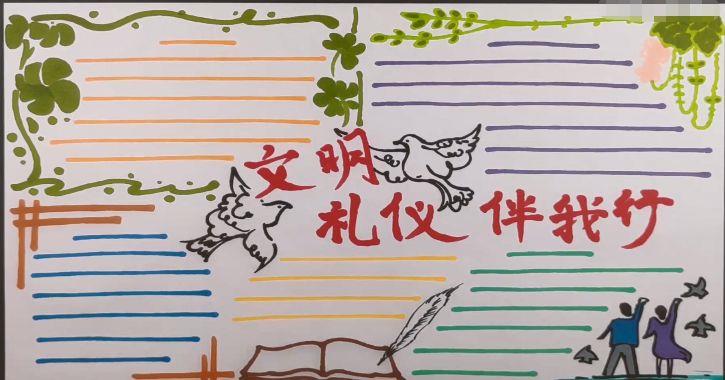 文明
礼仪伴我行